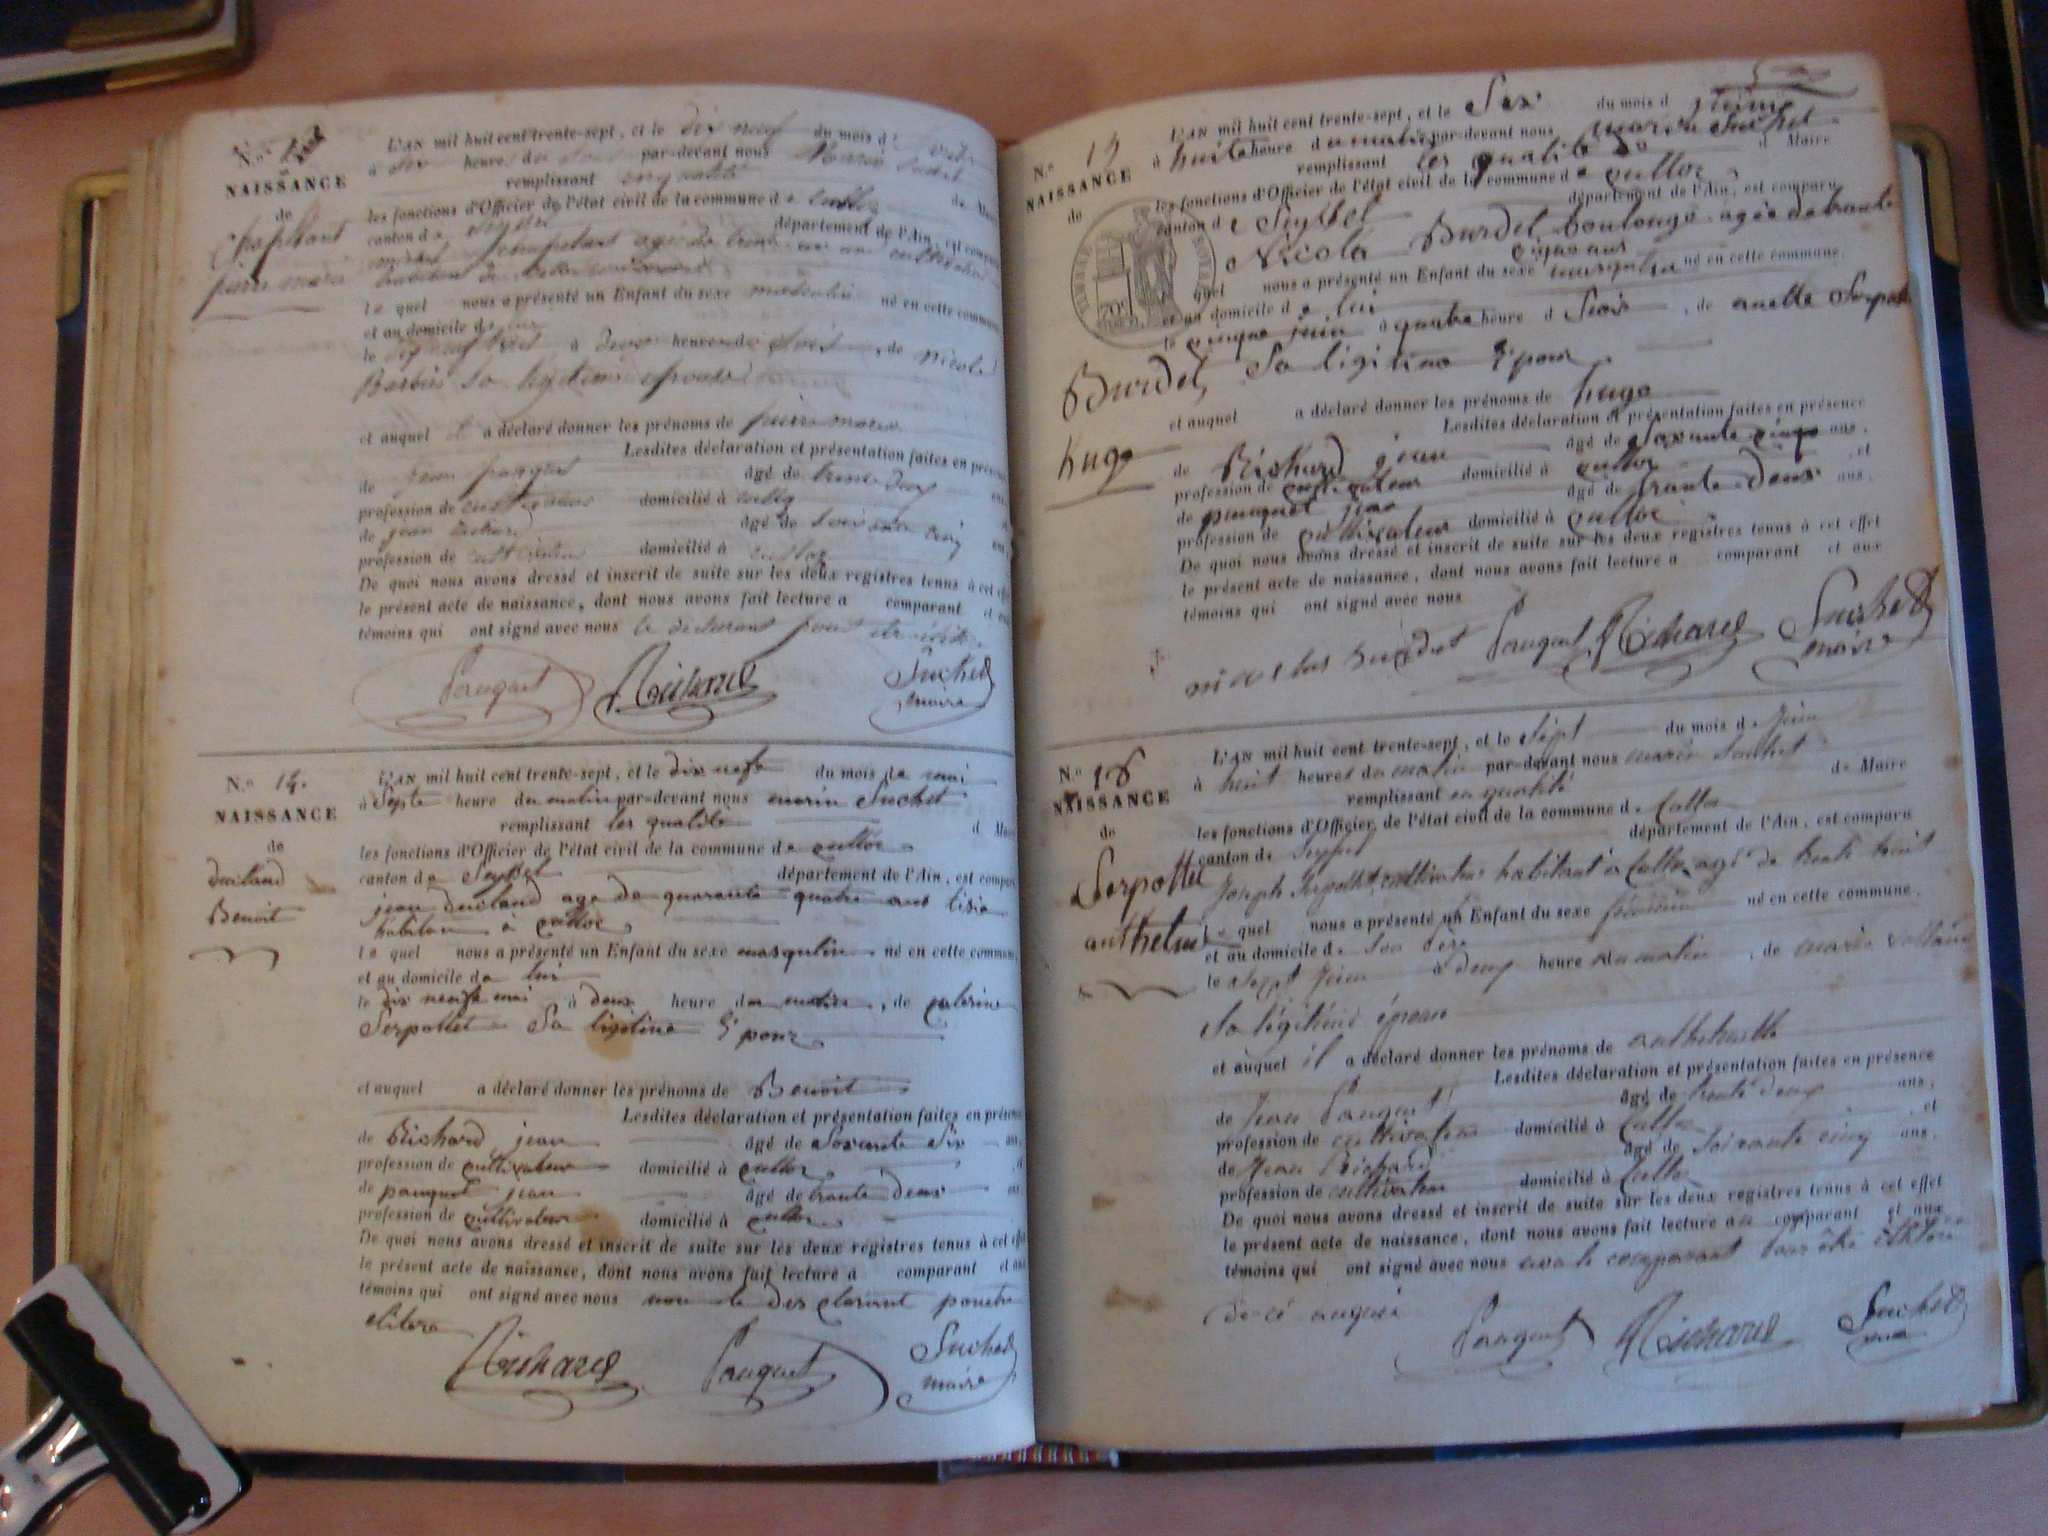 N.º
NAISSANCE
de
pierre marie
L'AN mil huit cent trente-sept, et le dix neuf du mois d'
à heure du par-devant nous Marin Suchet
remplissant
les fonctions d'Officier de l'état civil de la commune de culloz
canton de Seyssel département de l'Ain, est comparu
habitant de cette commune
le quel nous a présenté un Enfant du sexe masculin né en cette commune,
et au domicile de lui
le dix neuf à heure du Soir, de Nicole
Sa legitime epouse
et auquel il a déclaré donner les prénoms de pierre marie
Lesdites déclaration et présentation faites en présence
de jean pauquet âgé de trente deux ans,
profession de cultivateur domicilié à culloz
de jean richard âgé de soixante cinq ans,
profession de cultivateur domicilié à culloz
De quoi nous avons dressé et inscrit de suite sur les deux registres tenus à cet effet
le présent acte de naissance, dont nous avons fait lecture a comparant et aux
témoins qui ont signé avec nous le déclarant
Pauquet Richard Suchet
maire
N.º 14.
NAISSANCE
de
Benoit
L'AN mil huit cent trente-sept, et le dix nefe du mois de mai
à Septe heure du matin par-devant nous marin Suchet
remplissant les qualite d Maire
les fonctions d'Officier de l'état civil de la commune de culloz
canton de Seyssel département de l'Ain, est comparu
jean age de quarante quatre ans
habitan à culloz
le quel nous a présenté un Enfant du sexe masqulin né en cette commune,
et au domicile de lui
le dix neufe mai à deux heure du matin, de caterine
Serpollet Sa ligitime E pouz
et auquel a déclaré donner les prénoms de Benoit
Lesdites déclaration et présentation faites en présence
de Richard jean âgé de Soxante Six ans,
profession de cultivateur domicilié à culloz
de pauquet jean âgé de trante deux ans
profession de cultivateur domicilié à culloz
De quoi nous avons dressé et inscrit de suite sur les deux registres tenus à cet effet
le présent acte de naissance, dont nous avons fait lecture à comparant et aux
témoins qui ont signé avec nous non le des clarant
Richard Pauquet Suchet
maire
N.º 15
NAISSANCE
de
Burdet
hugo
L'AN mil huit cent trente-sept, et le Six du mois d juin
à huite heure du matin par-devant nous marin Suchet
remplissant les qualite de d Maire
les fonctions d'Officier de l'état civil de la commune de culloz
canton de Seyssel département de l'Ain, est comparu
Nicola Burdet agée de trante
cinq ans
le quel nous a présenté un Enfant du sexe masqulin né en cette commune,
et au domicile de lui
le cinque juin à quatre heure d Soir, de anette Serpollet
Sa ligitime E pouz
et auquel a déclaré donner les prénoms de hugo
Lesdites déclaration et présentation faites en présence
de Richard jean âgé de Soxante cinqe ans,
profession de cultivateur domicilié à culloz et
de pauquet jean âgé de trante deux ans,
profession de cultivateur domicilié à culloz
De quoi nous avons dressé et inscrit de suite sur les deux registres tenus à cet effet
le présent acte de naissance, dont nous avons fait lecture a comparant et aux
témoins qui ont signé avec nous
nicolas burdet Pauquet Richard Suchet
maire
N.º 16
NAISSANCE
de
Serpollet
L'AN mil huit cent trente-sept, et le Sept du mois de Juin
à huit heures du matin par-devant nous marin Suchet
remplissant en qualité de Maire
les fonctions d'Officier de l'état civil de la commune de Culloz
canton de Seyssel département de l'Ain, est comparu
Joseph Serpollet, cultivateur habitant à Culloz agé de trente huit
le quel nous a présenté un Enfant du sexe féminin né en cette commune,
et au domicile de Son Père
le Sept Juin à deux heure du matin, de marie
Sa légitime épouse
et auquel il a déclaré donner les prénoms de
Lesdites déclaration et présentation faites en présence
de Jean Pauquet âgé de trente deux ans,
profession de cultivateur domicilié à Culloz et
de Jean Richard âgé de Soixante cinq ans,
profession de cultivateur domicilié à Culloz
De quoi nous avons dressé et inscrit de suite sur les deux registres tenus à cet effet
le présent acte de naissance, dont nous avons fait lecture au comparant et aux
témoins qui ont signé avec nous le comparant
de ce
Pauquet Richard Suchet